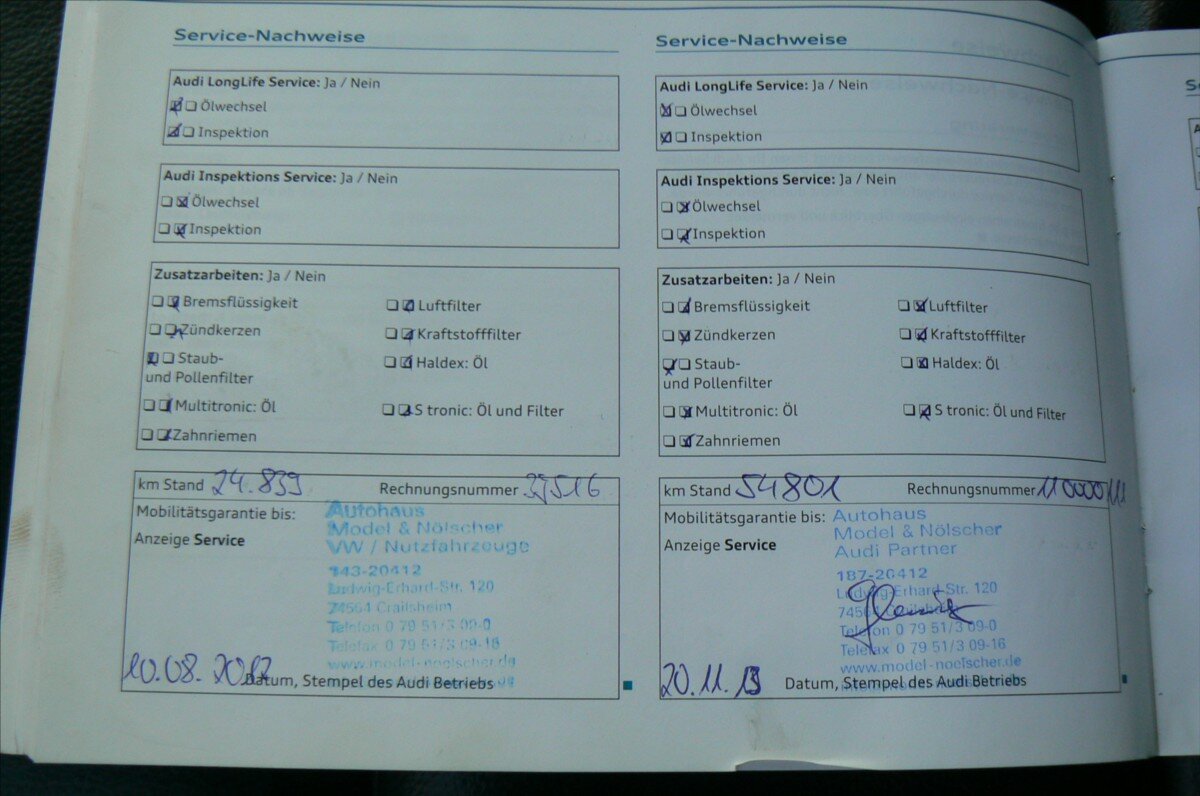 Service-Nachweise
Audi LongLife Service: Ja / Nein
Ölwechsel
Inspektion
Audi Inspektions Service: Ja / Nein
Ölwechsel
Inspektion
Zusatzarbeiten: Ja / Nein
Bremsflüssigkeit
Luftfilter
Zündkerzen
Kraftstofffilter
Staub-
und Pollenfilter
Haldex: Öl
Multitronic: Öl
S tronic: Öl und Filter
Zahnriemen
km Stand 24.839 Rechnungsnummer 37516
Mobilitätsgarantie bis:
Anzeige Service
Autohaus
Model & Nölscher
VW / Nutzfahrzeuge
143-20412
Ludwig-Erhard-Str. 120
74564 Crailsheim
Telefon 0 79 51/3 09-0
Telefax 0 79 51/3 09-16
www.model-noelscher.de
10.08.2012
Datum, Stempel des Audi Betriebs
Service-Nachweise
Audi LongLife Service: Ja / Nein
Ölwechsel
Inspektion
Audi Inspektions Service: Ja / Nein
Ölwechsel
Inspektion
Zusatzarbeiten: Ja / Nein
Bremsflüssigkeit
Luftfilter
Zündkerzen
Kraftstofffilter
Staub-
und Pollenfilter
Haldex: Öl
Multitronic: Öl
S tronic: Öl und Filter
Zahnriemen
km Stand 54801 Rechnungsnummer 110000111
Mobilitätsgarantie bis:
Anzeige Service
Autohaus
Model & Nölscher
Audi Partner
187-20412
Ludwig-Erhard-Str. 120
74564 Crailsheim
Telefon 0 79 51/3 09-0
Telefax 0 79 51/3 09-16
www.model-noelscher.de
20.11.13
Datum, Stempel des Audi Betriebs